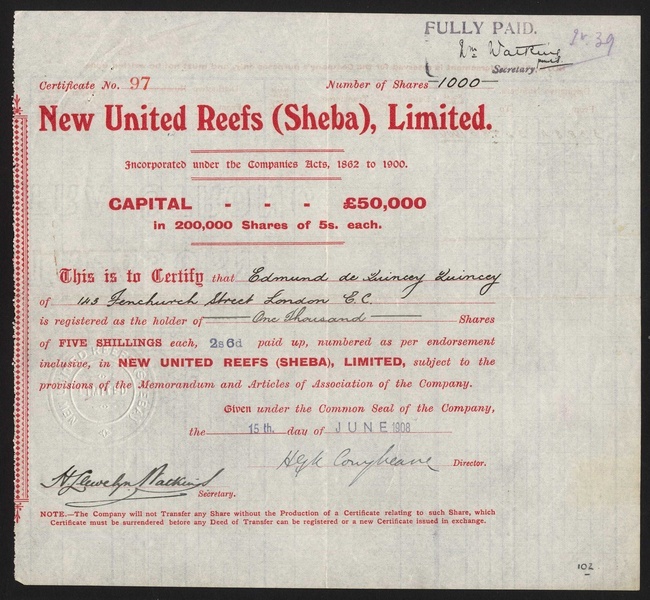 FULLY PAID.
Watkins
Secretary.
Certificate No. 97 Number of Shares 1000
New United Reefs (Sheba), Limited.
Incorporated under the Companies Acts, 1862 to 1900.
CAPITAL - - - £50,000
in 200,000 Shares of 5s. each.
This is to Certify that Edmund de Quincey Quincey
of 143 Fenchurch Street London E.C.
is registered as the holder of One Thousand Shares
of FIVE SHILLINGS each, 2s6d paid up, numbered as per endorsement
inclusive, in NEW UNITED REEFS (SHEBA), LIMITED, subject to the
provisions of the Memorandum and Articles of Association of the Company.
Given under the Common Seal of the Company,
the 15th. day of JUNE 1908
Director.
H Llewelyn Watkins
Secretary.
NOTE.—The Company will not Transfer any Share without the Production of a Certificate relating to such Share, which
Certificate must be surrendered before any Deed of Transfer can be registered or a new Certificate issued in exchange.
102